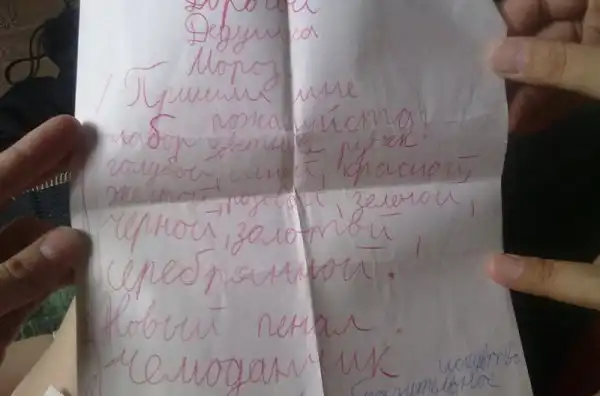 Дорогой
Дедушка
Мороз
Пришли мне
пожалуйста!
набор цветных ручек:
голубой, синей, красной,
желтой, розовой, зеленой,
черной, золотой,
серебрянной.
Новый пенал.
чемоданчик